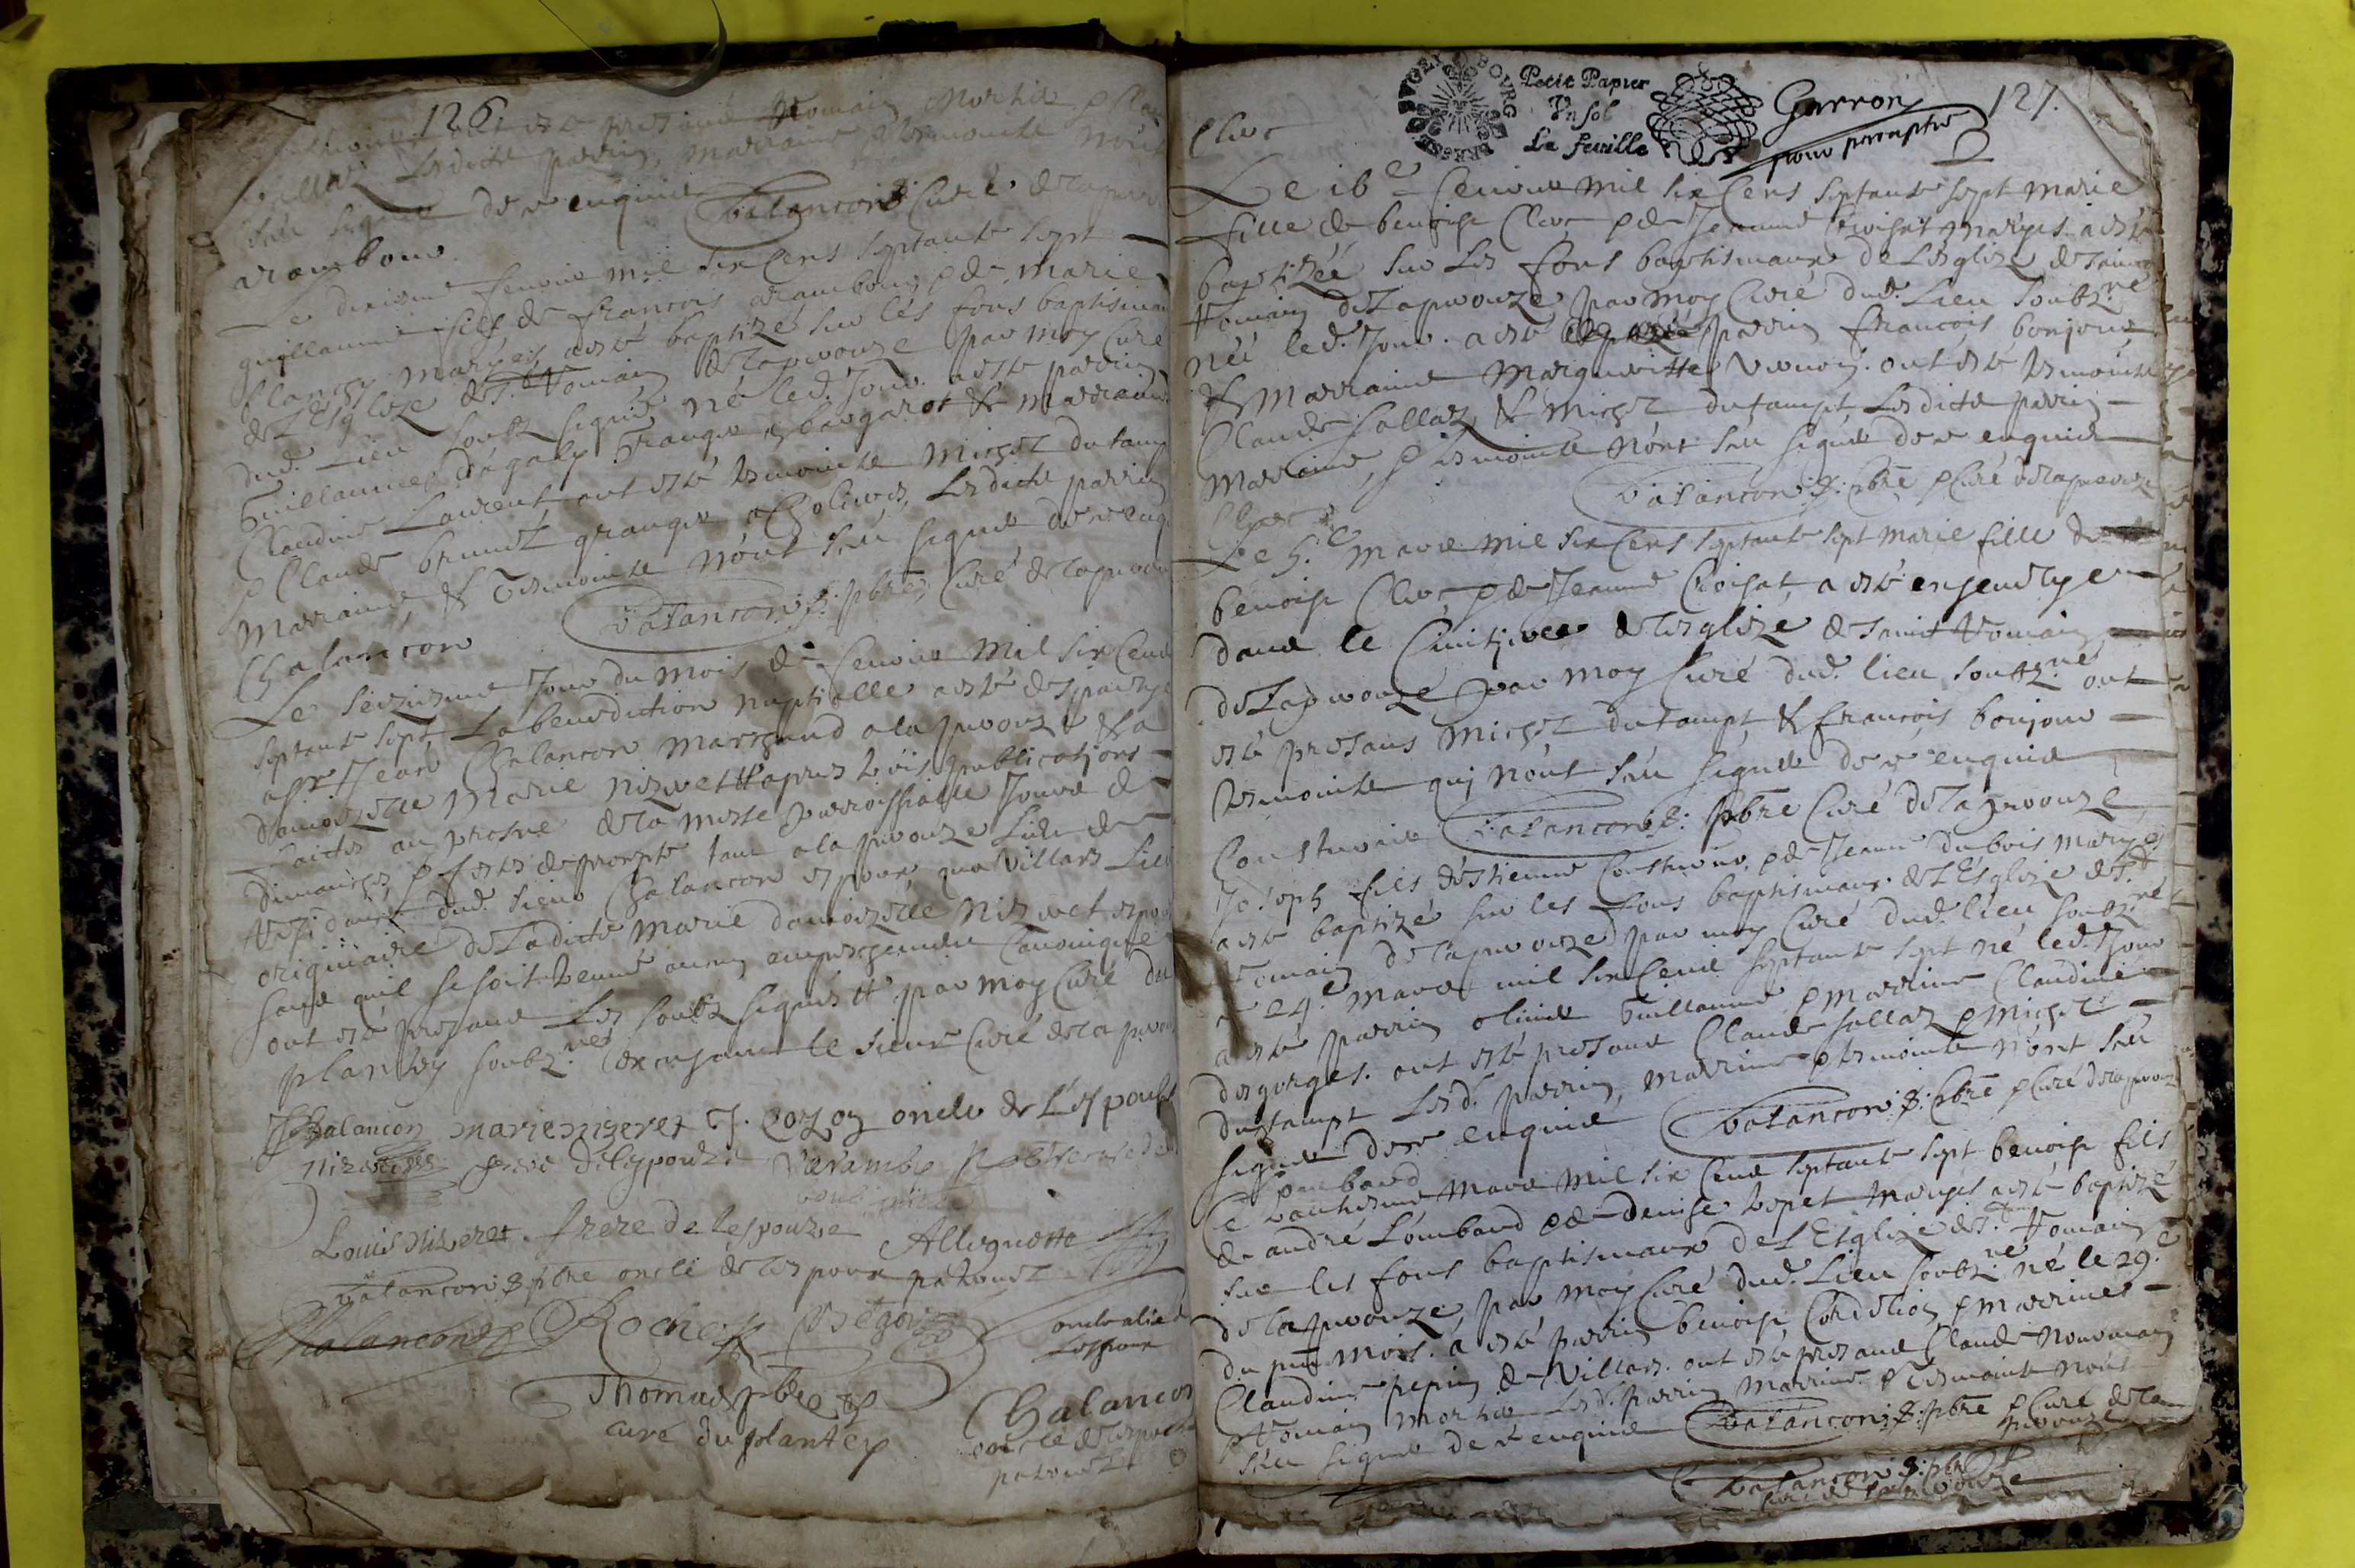 126.
esté presans Romain Mortier & Claude
Sallaz Lesdicts parrin, marraine & tesmoints n'ont
sceu signer de ce enquis Balancon Curé de Laperouze
arambour
Le dixiesme fevrier mil six Cens septante sept
guillaume fils de francois arambour & de marie
planchy mariés a esté baptizé sur les fons baptismaux
de L'Esglize de St Romain de Laperouze par moy Curé
dud. Lieu soubz signé né led. Jour a esté parrin
Guillaume granger & marraine
Claudine Laurent, ont esté tesmoints Michel dutamp
& Claude brunet granger a Lesdicts parrin
Marraine, & Tesmoints n'ont sceu signer de ce enquis
Balancon P. pbre, Curé de Laperouze
Chalancon
Le seziesme Jour du mois de fevrier Mil six Cens
septante sept La benediction nuptialle a esté
a Sr Jean Chalancon marchand a la perouze & a
damoizelle Marie nizeret apres trois publications
faictes au prosne de la messe parroissialle Jours de
dimanches & festes tant a la perouze Lieu de
Residance dud. sieur Chalancon espoux, qu'a Villars Lieu
originaire de Ladicte Marie damoizelle Nizeret
sans qu'il se soit treuvé aucun empeschement Canonique
ont esté presans Les soubz signés & par moy Curé du
plantey soubz.né en absence le sieur Curé de la perouze
JChalancon marie nizeret J. Cozon oncle de L'espouse
nizeret frere de lespouze Varambo
Louis Nizeret frere de lespouze Allognette
Balancon P. pbre oncle de lespoux paternel
Chalancon Roche Begoz oncle alié de Lespoux
Thomas pbre Chalancon
curé du plantey oncle de lespoux
paternel
GENERALITE BOURG
Petit Papier
Un sol
La feuille
Garron
pour paraphe
127.
Clerc
Le 16e fevrier mil six Cens septante sept marie
fille de benoist Clerc & de Jeanne Croisat mariés a esté
baptizéé sur Les fons baptismaux de Lesglize de Sainct
Romain de Laperouze, par moy Curé dud. Lieu soubz.né
néé led. Jour. a esté parrin francois bonjour
& Marraine Margueritte Vernoy. ont esté tesmoints
Claude Sallaz, & Michel dutampt, Lesdicts parrin
Marraine, & tesmoints n'ont sceu signer de ce enquis
Balancon P. pbre & Curé de Laperouze
Clerc
Le 5.e mars mil six Cens septante sept marie fille de
benoist Clerc & de Jeanne Croisat, a esté ensevelye
dans le Cimitiere de Lesglize de Sainct Romain
de Laperouze par moy Curé dud. lieu soubz.né ont
esté presans Michel dutampt, & francois bonjour
tesmoints qui n'ont sceu signer de ce enquis
Balancon P. pbre Curé de Laperouze
Cousturier
Joseph fils d'estienne Cousturier & de Jeanne Dubois mariés
a esté baptizé sur les fons baptismaux de L'Esglize de St
Romain de Laperouze par moy Curé dud. lieu soubz.né
le 24.e mars mil six Cens septante sept né led. Jour
a esté parrin olivier Guillaume & marrine Claudine
desgorges. ont esté presans Claude Sallaz & Michel
dustampt Lesd. parrin, marrine & tesmoints n'ont sceu
signer de ce enquis Balancon P. pbre & Curé de Laperouze
Lombard
Le trantiesme mars mil six Cens septante sept benoist fils
de andré Lombard & de denise mariés a esté baptizé
sur les fons baptismaux de L'Esglize de St Romain
de Laperouze, par moy Curé dud. Lieu soubz.né né le 29.e
du pnt mois. a esté parrin benoist Cordelier & marrine
Claudine pepin de Villars. ont esté presans Claude
& Romain Mortier Lesd. parrin Marrine & Tesmoints n'ont
sceu signer de ce enquis Balancon P. pbre & Curé de La
perouze
Balancon P. pbre